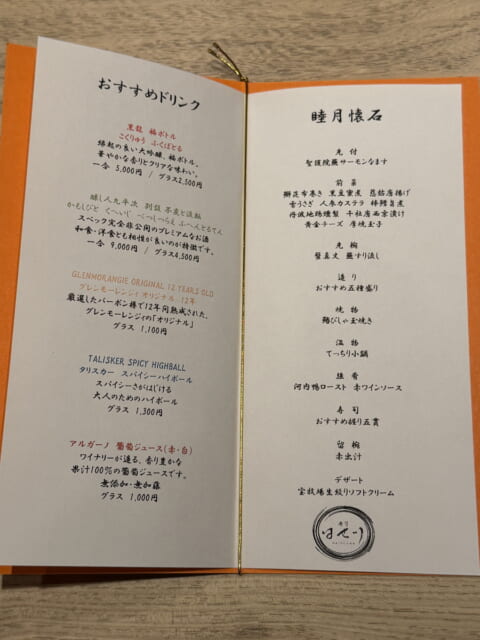 おすすめドリンク
黒龍 福ボトル
こくりゅう ふくぼとる
縁起の良い大吟醸、福ボトル。
華やかな香りとクリアな味わい。
一合 5,000円 / グラス2,500円
醸し人九平次 別誂
かもしびと くへいじ べつあつらえ
スペック完全非公開のプレミアムなお酒
和食・洋食とも相性が良いのが特徴です。
一合 9,000円 / グラス4,500円
GLENMORANGIE ORIGINAL 12 YEARS OLD
グレンモーレンジィ オリジナル 12年
厳選したバーボン樽で12年間熟成された、
グレンモーレンジィの「オリジナル」
グラス 1,100円
TALISKER SPICY HIGHBALL
タリスカー スパイシーハイボール
スパイシーさがはじける
大人のためのハイボール
グラス 1,300円
アルガーノ 葡萄ジュース(赤・白)
ワイナリーが造る、香り豊かな
果汁100%の葡萄ジュースです。
無添加・無加糖
グラス 1,000円
睦月懐石
先付
聖護院蕪サーモンなます
前菜
鰤昆布巻き 黒豆蜜煮 慈姑唐揚げ
雪うさぎ 人参カステラ 棒鱈旨煮
丹波地鶏燻製 千社唐西京漬け
黄金チーズ 厚焼玉子
先椀
蟹真丈 蕪すり流し
造り
おすすめ五種盛り
焼物
鰤びしゃ玉焼き
温物
てっちり小鍋
強肴
河内鴨ロースト 赤ワインソース
寿司
おすすめ握り五貫
留椀
赤出汁
デザート
宝牧場生絞りソフトクリーム
寿司
はせ川